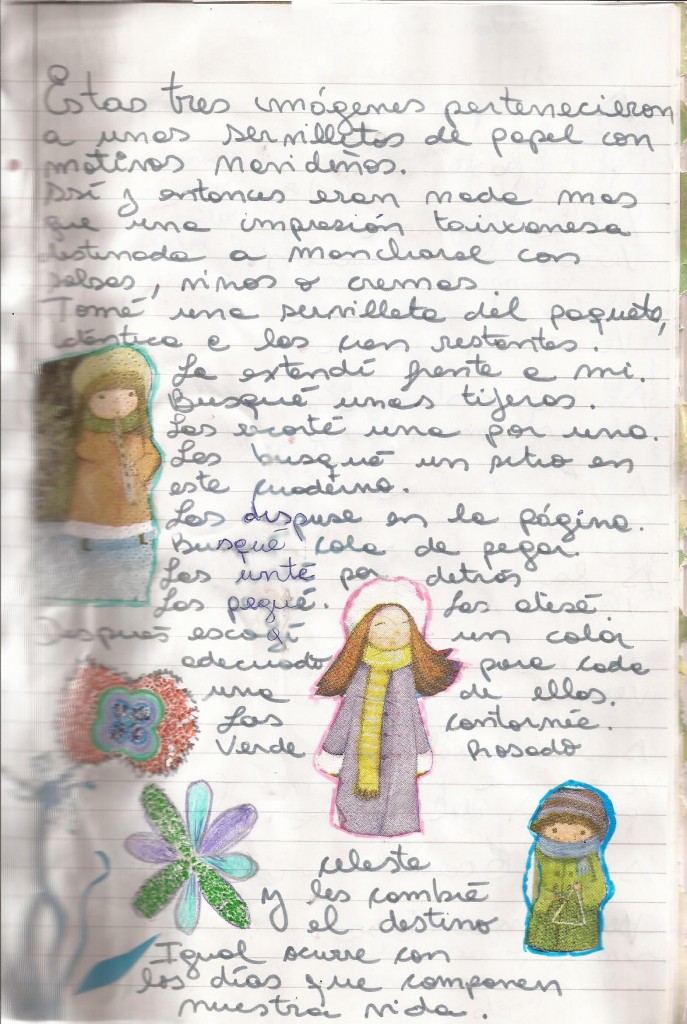 Estas tres imágenes pertenecieron
a unas servilletas de papel con
motivos navideños.
Así y entonces eran nada mas
que una impresión taiwanesa
destinada a mancharse con
salsas, vinos o cremas.
Tomé una servilleta del paquete,
idéntica a las cien restantes.
La extendí frente a mi.
Busqué unas tijeras.
Las recorté una por una.
Les busqué un sitio en
este cuaderno.
Las dispuse en la página.
Busqué cola de pegar.
Las unté por detrás
Las pegué. Las alisé
Después escogí un color
adecuado para cada
una de ellas.
Las contorneé.
Verde Rosado
celeste
y les cambié
el destino
Igual ocurre con
los días que componen
nuestra vida.